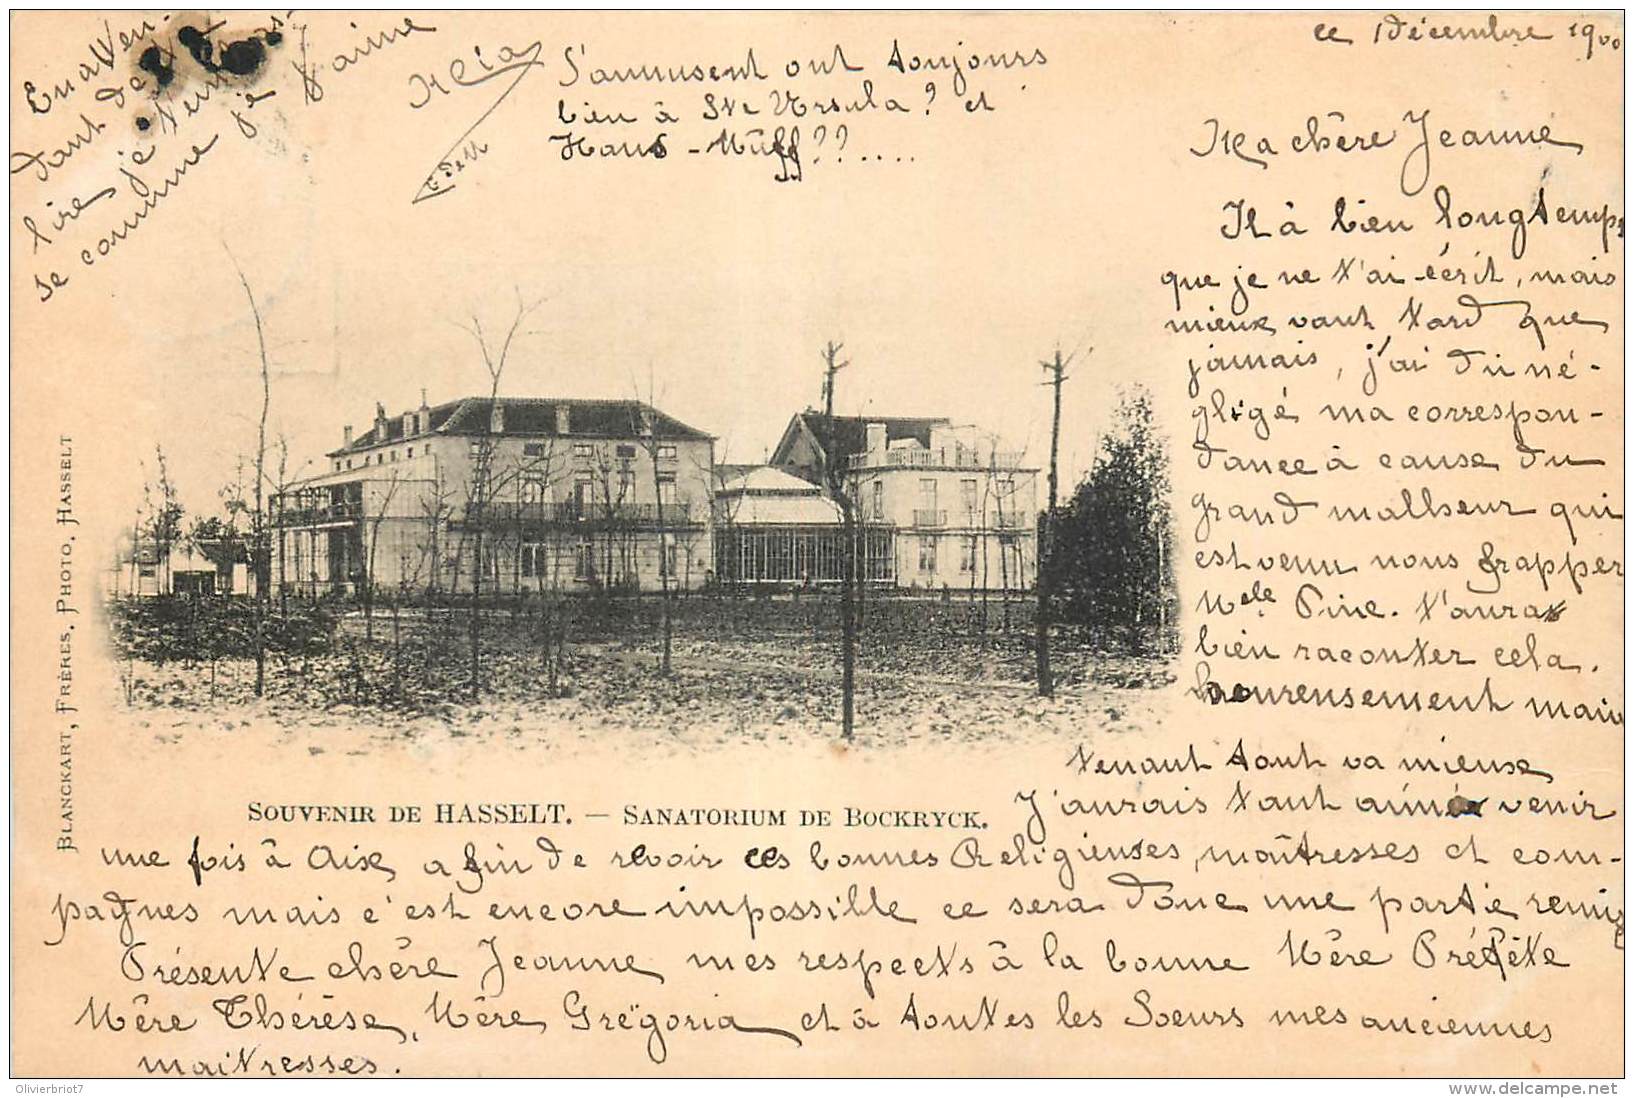 ce 1 Décembre 1900
Ma chère Jeanne
Il à bien longtemps
que je ne t'ai écrit, mais
mieux vaut tard que
jamais, j'ai du né-
gligé ma correspon-
dance à cause du
grand malheur qui
est venu nous frapper
Mele Pine. t'aura
bien raconter cela.
heureusement main
tenant tout va mieux
J'aurais tant aimé venir
une fois à Aix, afin de revoir ces bonnes Religieuses, maîtresses et com-
pagnes mais c'est encore impossible ce sera donc une partie remise
Présente chère Jeanne mes respects à la bonne Mère Préfète
Mère Thérèse, Mère Grégoria et à toutes les Soeurs mes anciennes
maitresses.
S'amusent ont toujours
bien à Ste Ursula? et
Hans-Müff??....
En atten-
dant de te
lire je t'em
se comme je t'aime
SOUVENIR DE HASSELT. — SANATORIUM DE BOCKRYCK.
BLANCKART, FRÈRES, PHOTO, HASSELT
Olivierbriot7
delcampe.net